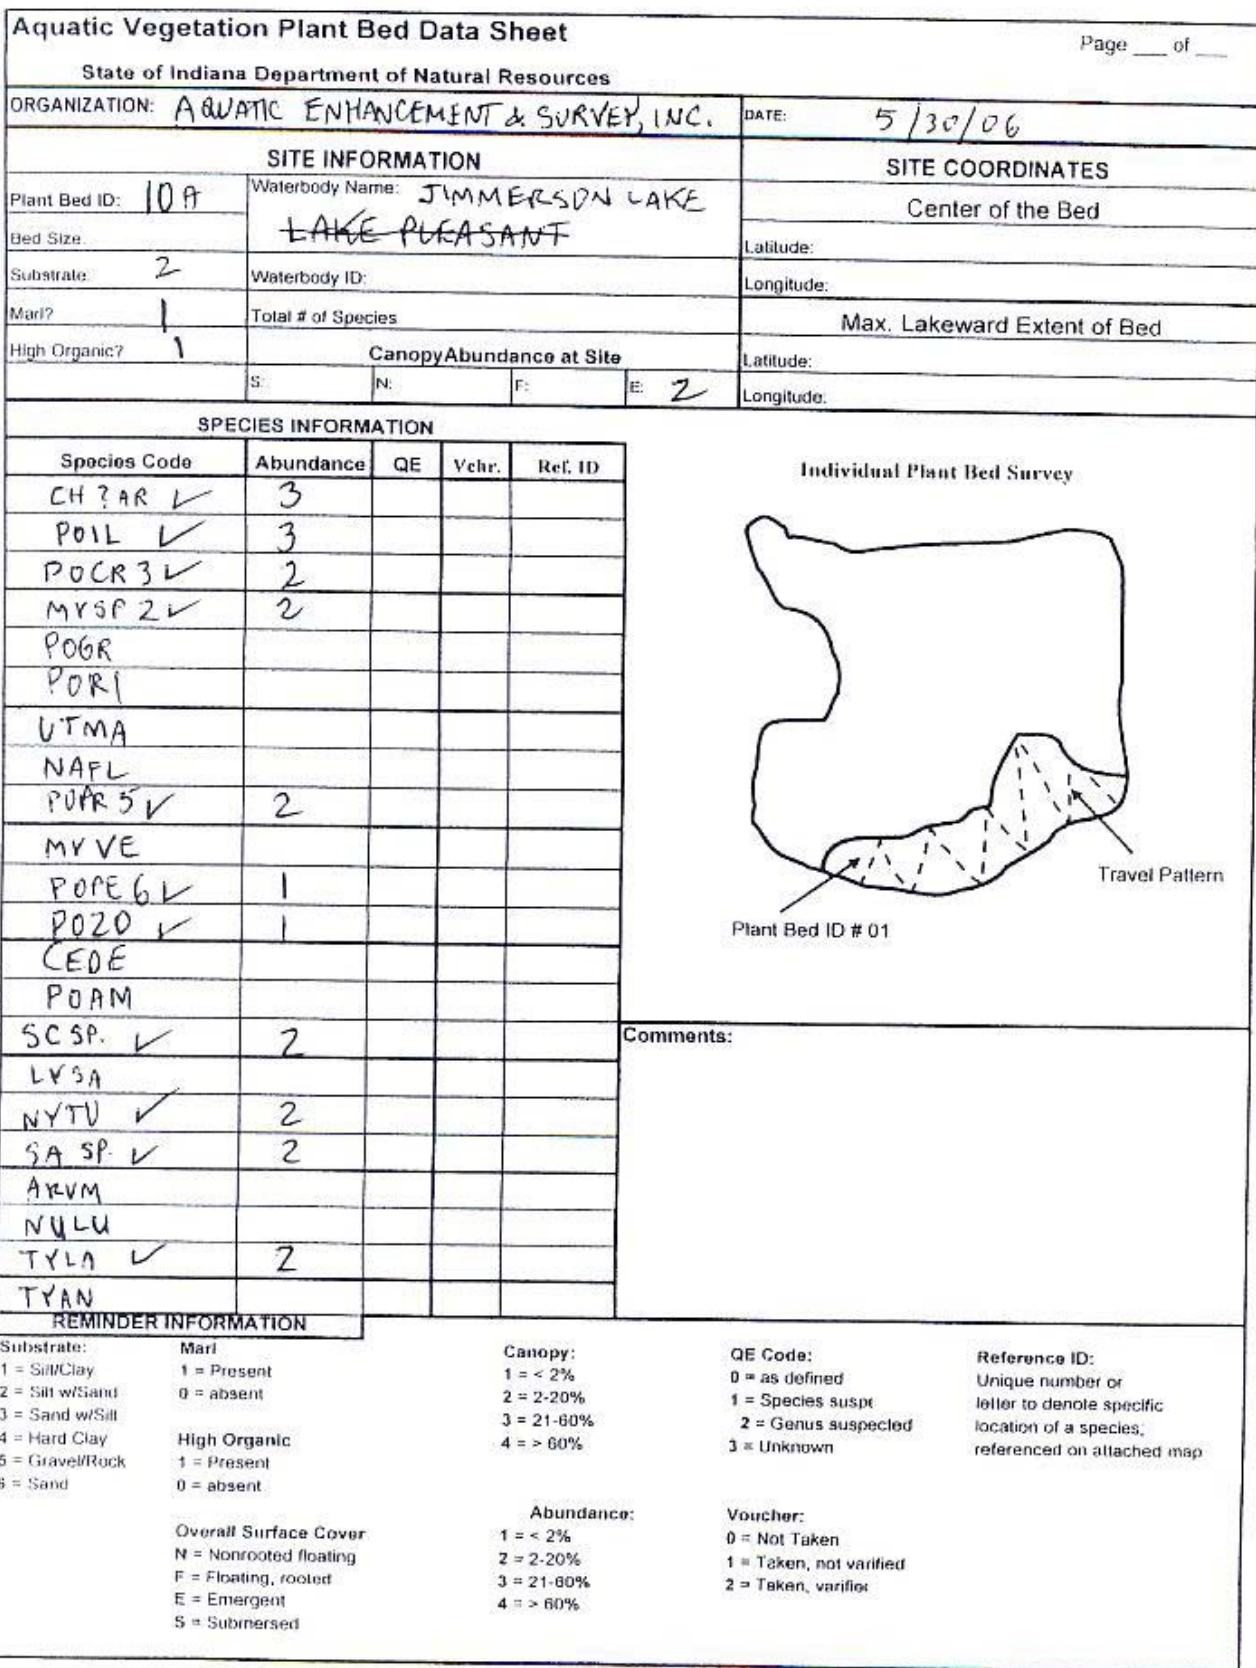 Aquatic Vegetation Plant Bed Data Sheet
Page ___ of ___
State of Indiana Department of Natural Resources
ORGANIZATION: AQUATIC ENHANCEMENT & SURVEY, INC.
DATE: 5/30/06
SITE INFORMATION
SITE COORDINATES
Plant Bed ID: 10A
Waterbody Name: JIMMERSON LAKE
LAKE PLEASANT
Center of the Bed
Bed Size.
Latitude:
Substrate: 2
Waterbody ID:
Longitude:
Marl? 1
Total # of Species
Max. Lakeward Extent of Bed
High Organic? 1
Canopy Abundance at Site
Latitude:
S: N: F: E: 2
Longitude:
SPECIES INFORMATION
Species Code Abundance QE Vchr. Ref. ID
CH?AR ✓ 3
POIL ✓ 3
POCR3 ✓ 2
MYSP2 ✓ 2
POGR
PORI
UTMA
NAFL
POPR5 ✓ 2
MYVE
POPE6 ✓ 1
POZO ✓ 1
CEDE
POAM
SC SP. ✓ 2
LYSA
NYTU ✓ 2
SA SP. ✓ 2
ARVM
NULU
TYLA ✓ 2
TYAN
Individual Plant Bed Survey
Travel Pattern
Plant Bed ID # 01
Comments:
REMINDER INFORMATION
Substrate:
1 = Silt/Clay
2 = Silt w/Sand
3 = Sand w/Silt
4 = Hard Clay
5 = Gravel/Rock
6 = Sand
Marl
1 = Present
0 = absent
High Organic
1 = Present
0 = absent
Overall Surface Cover
N = Nonrooted floating
F = Floating, rooted
E = Emergent
S = Submersed
Canopy:
1 = < 2%
2 = 2-20%
3 = 21-60%
4 = > 60%
Abundance:
1 = < 2%
2 = 2-20%
3 = 21-60%
4 = > 60%
QE Code:
0 = as defined
1 = Species suspe
2 = Genus suspected
3 = Unknown
Voucher:
0 = Not Taken
1 = Taken, not varified
2 = Taken, varifie
Reference ID:
Unique number or
letter to denote specific
location of a species;
referenced on attached map